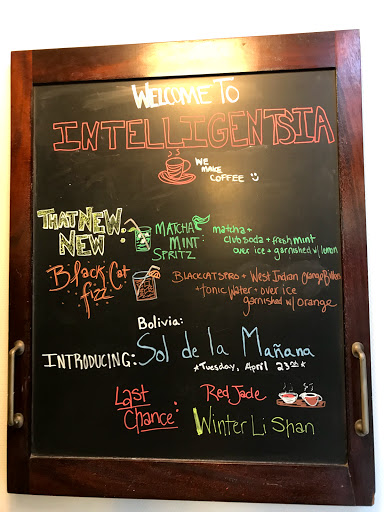 WELCOME TO
INTELLIGENTSIA
WE
MAKE
COFFEE
THAT NEW
NEW
MATCHA
MINT
SPRITZ:
matcha +
club soda + fresh mint
over ice + garnished w/ lemon
Black Cat
fizz
BLACK CAT SPRO + West Indian Orange Bitters
+ tonic water + over ice
garnished w/ orange
Bolivia:
INTRODUCING: Sol de la Mañana
*Tuesday, April 23rd*
Last
Chance:
Red Jade
Winter Li Shan